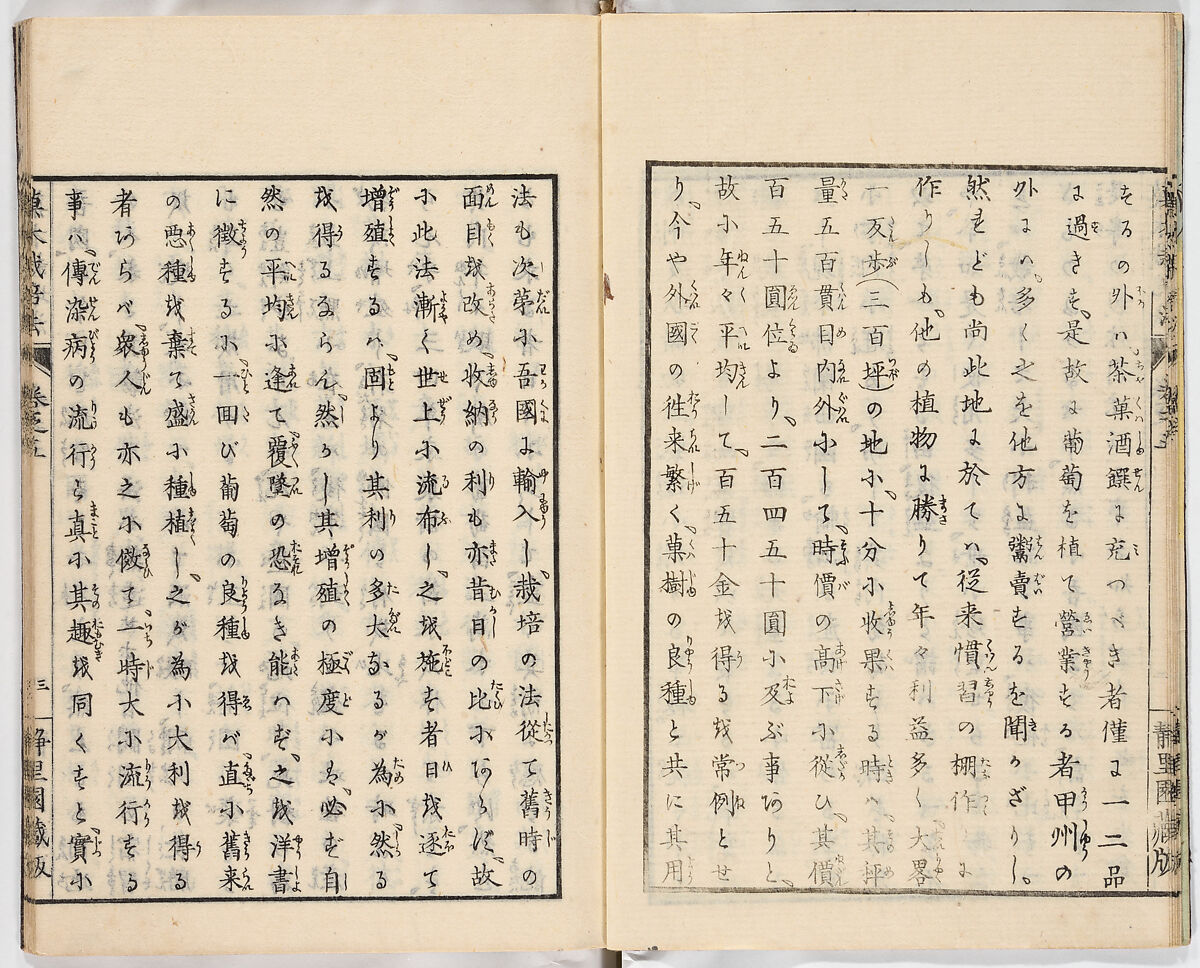 するの外ハ茶菓酒饌に充つべき者僅に一二品
に過きず、是故に葡萄を植て營業する者甲州の
外にハ、多く之を他方に鬻賣するを聞かざりし。
然れども尚此地に於てハ、従来慣習の棚作りに
作りしも、他の植物に勝りて年々利益多く、大畧
一反歩(三百坪)の地に、十分に收果する時ハ、其秤
量五百貫目内外にして、時價の高下に從ひ、其價
百五十圓位より、二百四五十圓に及ぶ事ありと、
故に年々平均して、百五十金を得るを常例とせ
り、今や外國の徃来繁く、菓樹の良種と共に其用
法も次第に吾國に輸入し、栽培の法從て舊時の
面目を改め、收納の利も亦昔日の比にあらず、故
に此法漸く世上に流布し、之を施す者日を逐て
増殖するハ、固より其利の多大なるが為に然る
を得るならん、然かし其増殖の極度にハ、必ず自
然の平均に逢て覆墜の恐なき能ハず、之を洋書
に徴するに、一回び葡萄の良種を得バ、直に舊来
の悪種を棄て盛に種植し、之が為に大利を得る
者あらバ、衆人も亦之に傚て、一時大に流行する
事ハ、傳染病の流行と真に其趣を同くすと、實に
菓木栽培法
卷之五
三
静里園藏版
静里園藏版